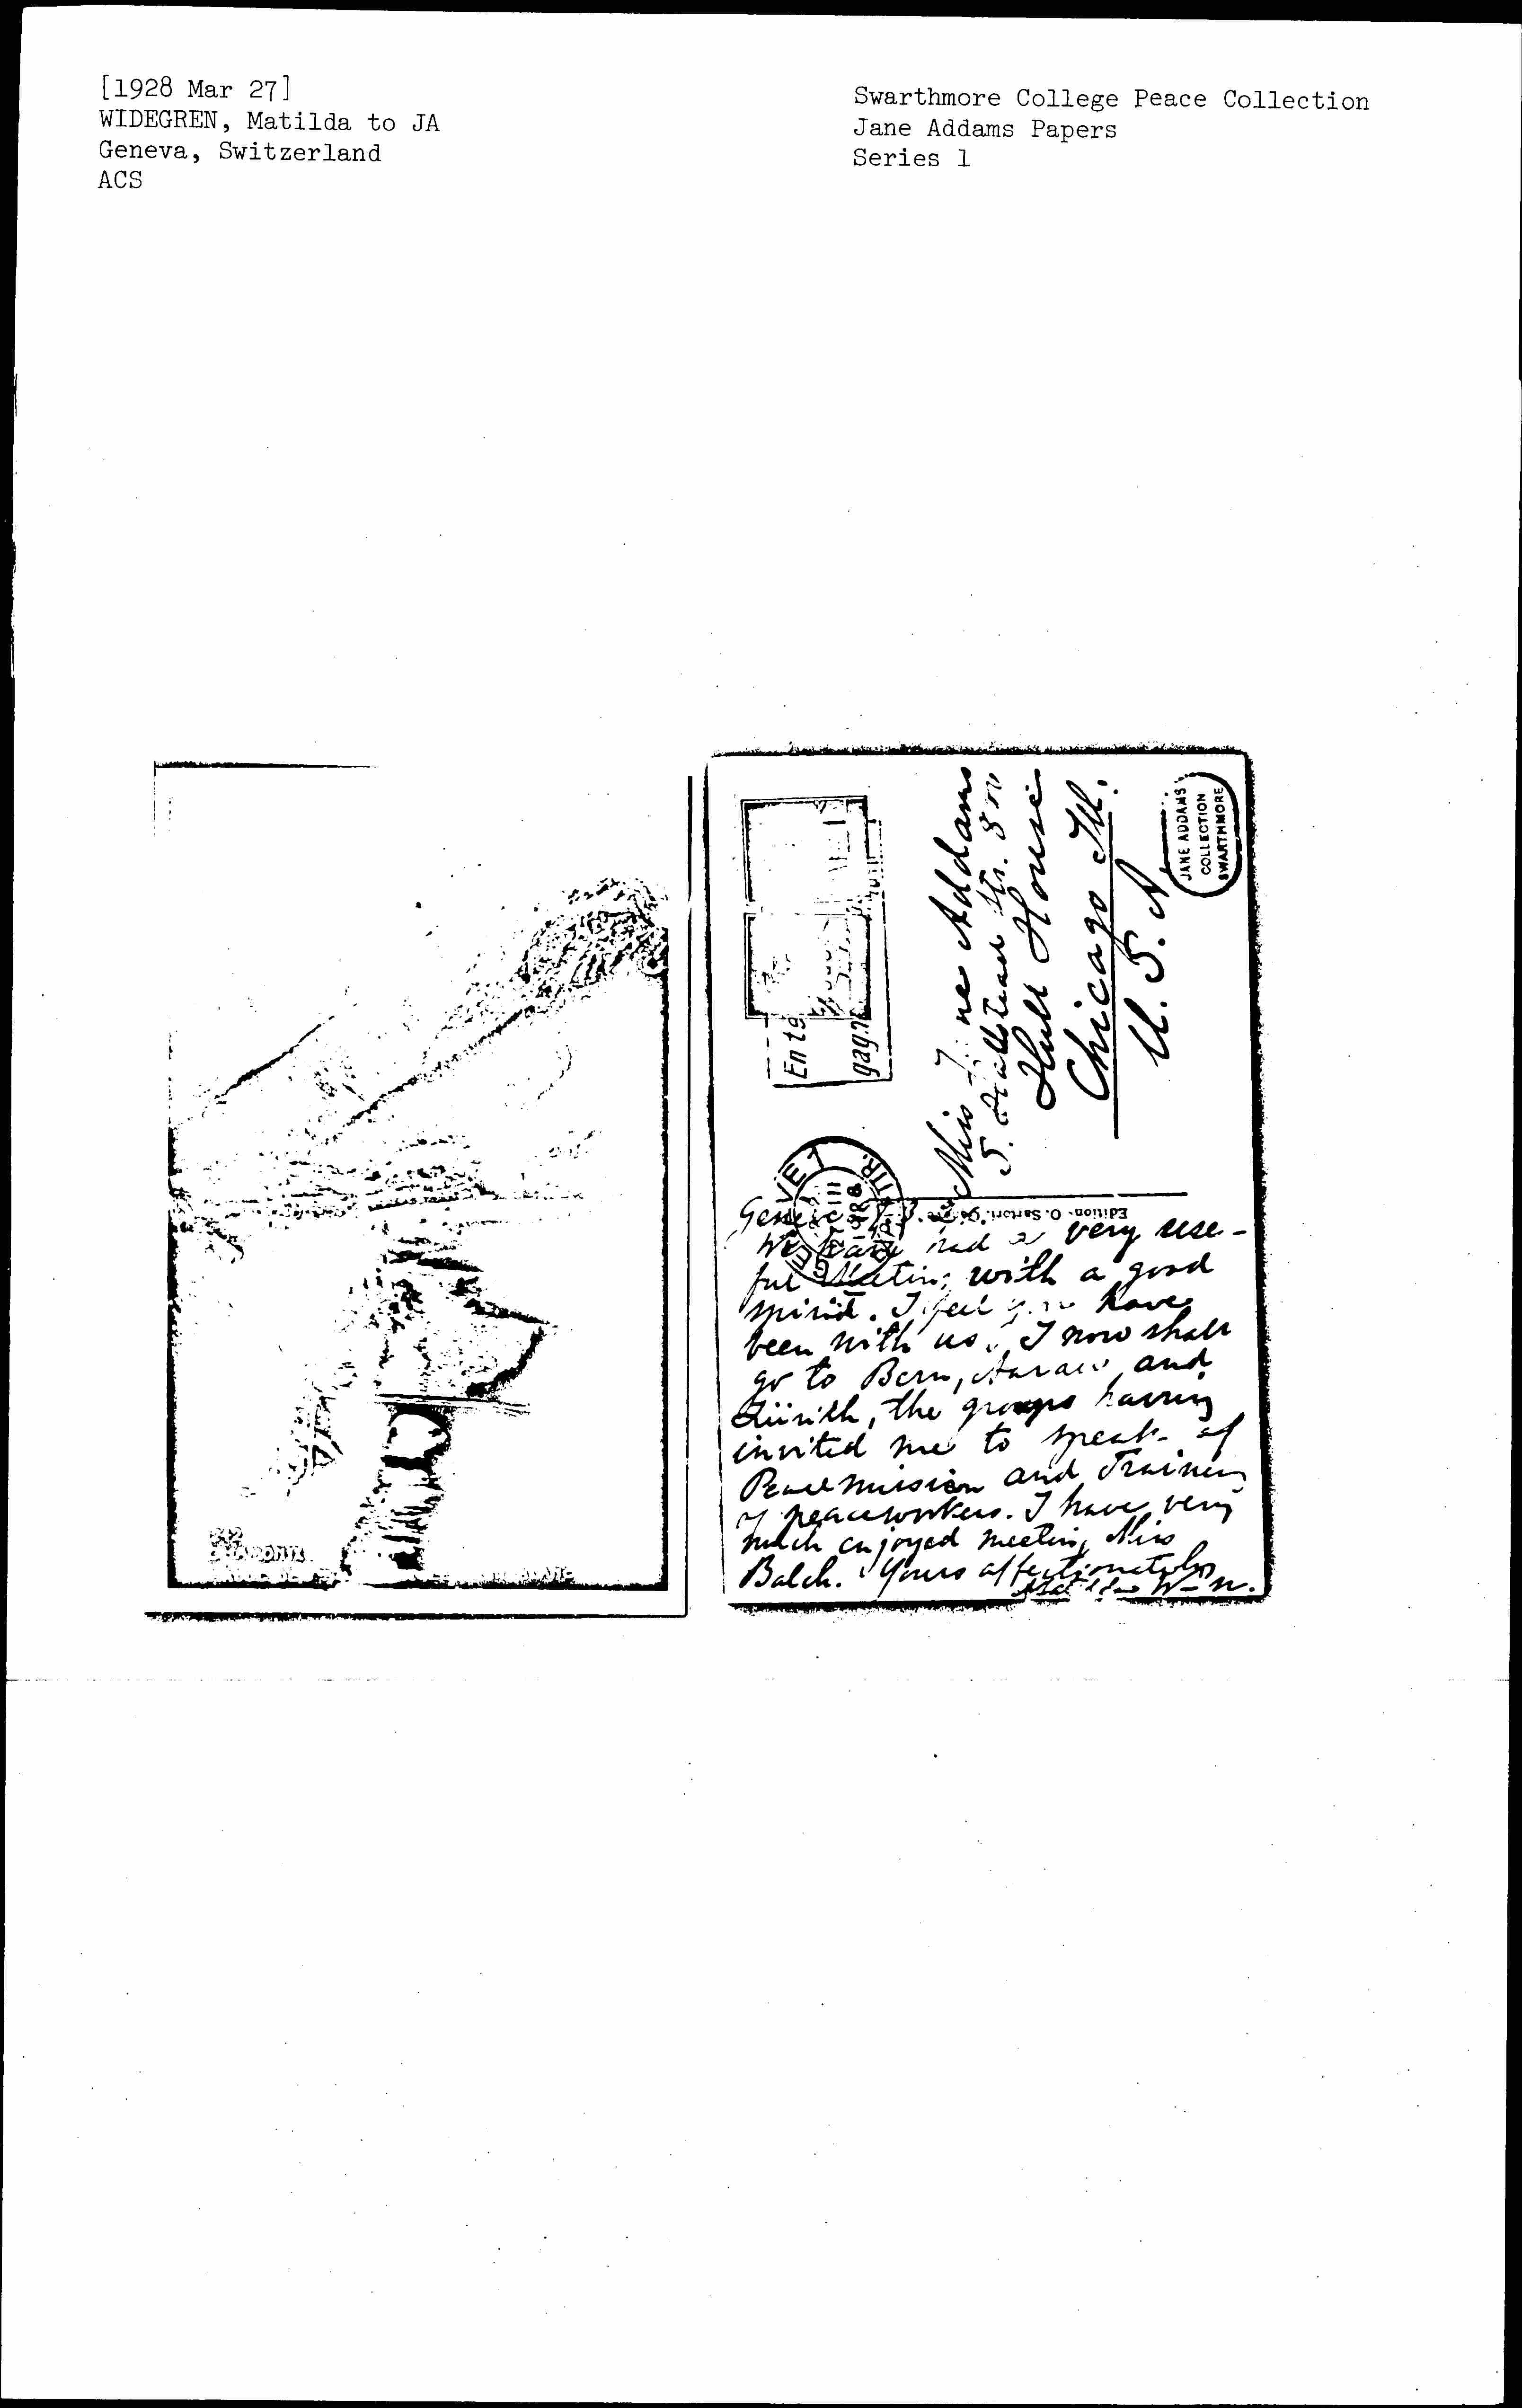 [1928 Mar 27]
WIDEGREN, Matilda to JA
Geneva, Switzerland
ACS
Swarthmore College Peace Collection
Jane Addams Papers
Series 1
Miss Addams
S. Hallstead Str. 800
Hull House
Chicago Ill.
U. S. A
JANE ADDAMS
COLLECTION
SWARTHMORE
Edition O. Sartori.
Geneve
We have had a very use-
ful Meeting with a good
spirit. I feel you have
been with us. I now shall
go to Bern, Aarau and
Zürich, the groups having
invited me to speak of
Peacemission and Training
of peaceworkers. I have very
much enjoyed meeting Miss
Balch. Yours affectionately
W-n.